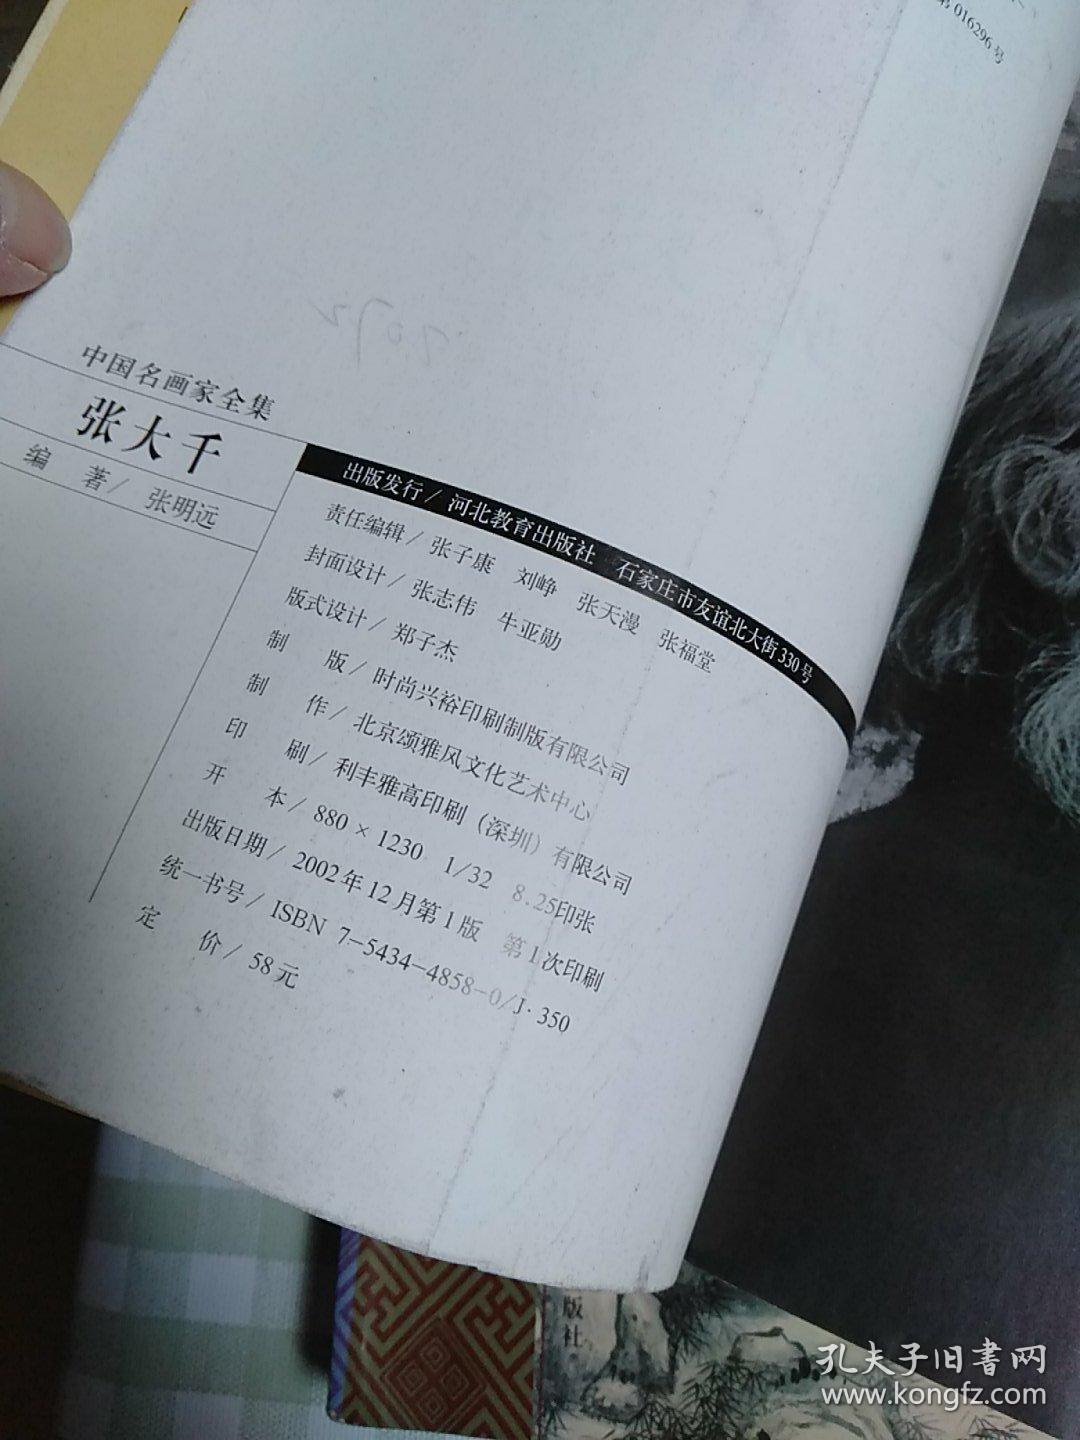 第016296号
中国名画家全集
张大千
编 著/ 张明远
出版发行/ 河北教育出版社 石家庄市友谊北大街330号
责任编辑/ 张子康 刘峥 张天漫 张福堂
封面设计/ 张志伟 牛亚勋
版式设计/ 郑子杰
制 版/ 时尚兴裕印刷制版有限公司
制 作/ 北京颂雅风文化艺术中心
印 刷/ 利丰雅高印刷（深圳）有限公司
开 本/ 880×1230 1/32 8.25印张
出版日期/ 2002年12月第1版 第1次印刷
统一书号/ ISBN 7-5434-4858-0/J·350
定 价/ 58元
版社
孔夫子旧書网
www.kongfz.com